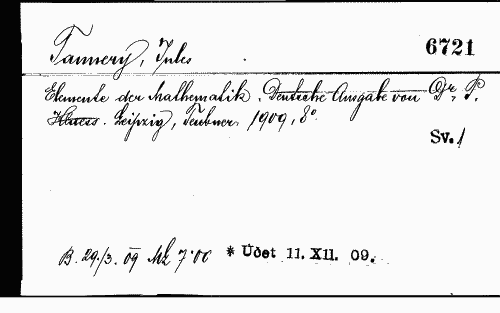 Tannery, Jules 6721
Elemente der Mathematik. Deutsche Ausgabe von Dr. P.
Klaess. Leipzig, Teubner. 1909, 8°
Sv. 1
B. 29./3. 09 Mk 7·00 * Uθet 11. XII. 09.